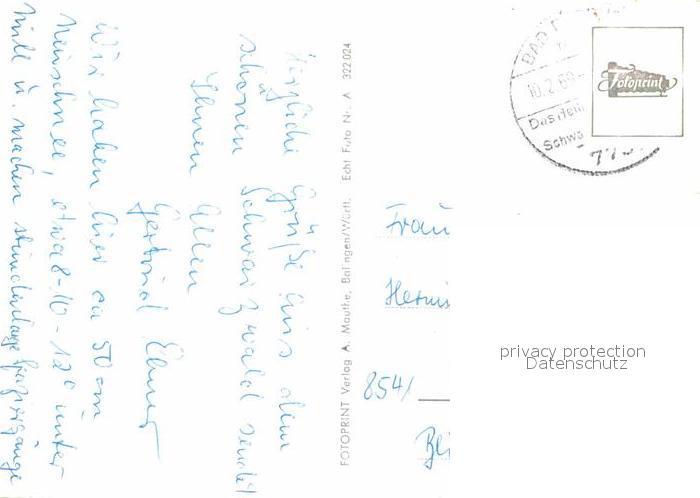 Herzliche Grüße aus dem
schönen Schwarzwald sendet
Ihnen Allen
Gertrud
Wir haben hier ca 50 cm
Neuschnee, etwa 8-10-12° unter
Null u. machen stundenlange Spaziergänge
FOTOPRINT Verlag A. Mauthe, Balingen/Württ. Echt Foto Nr. A 322.024
BAD
10.2.69-
Das Heil
Schwa
Fotoprint
Frau
Hermi
8541
privacy protection
Datenschutz